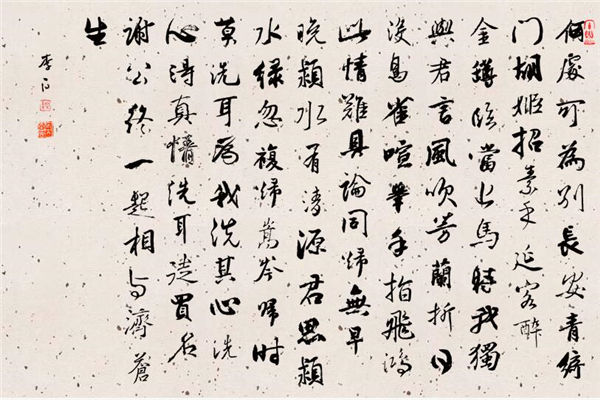 何處可為別長安青綺
門胡姬招素手延客醉
金罇臨當上馬時我獨
與君言風吹芳蘭折日
沒鳥雀喧舉手指飛鴻
此情難具論同歸無早
晚潁水有清源君思潁
水綠忽複歸嵩岑歸時
莫洗耳為我洗其心洗
心得真情洗耳徒買名
謝公終一起相与濟蒼
生
李白